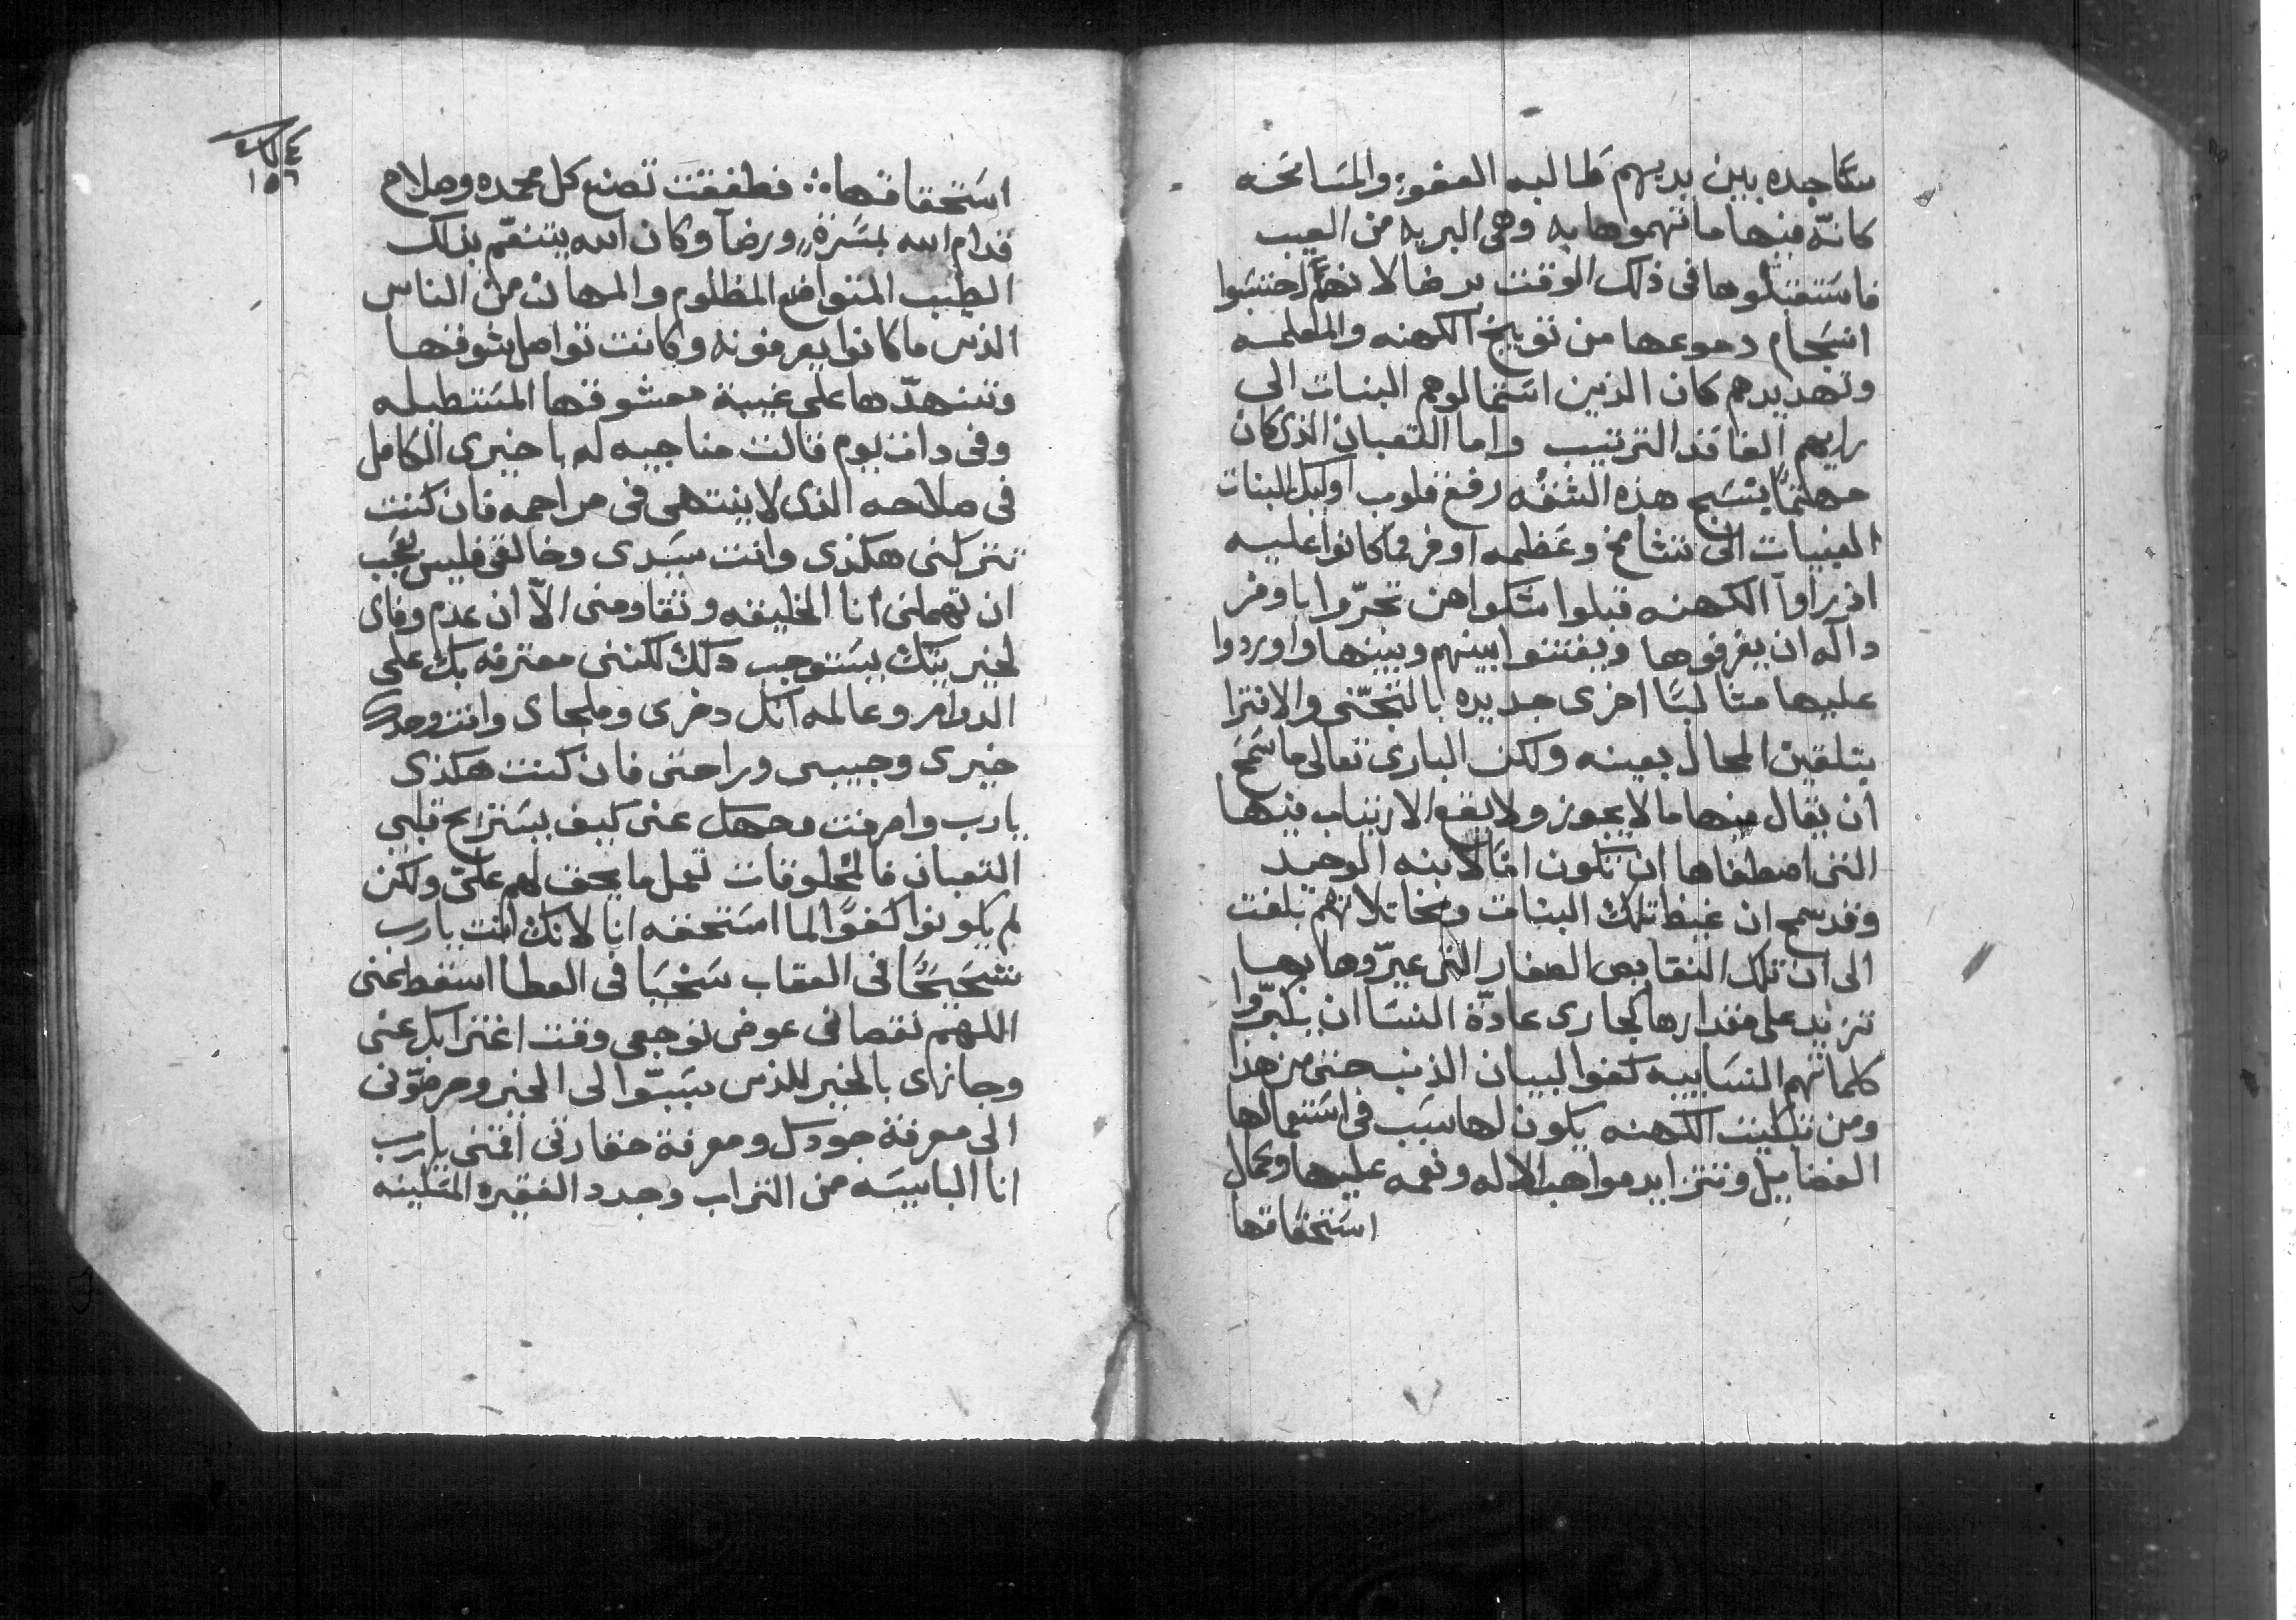 ساجده بين يديهم طالبه العفو والمسامحه
كانّه فيها ما اتهموها به وهى البريه من العيب
فاستقبلوها فى ذلك الوقت برضا لانهم احتسبوا
انسجام دموعها من توبيخ الكهنه والمعلمه
وتهديدهم كان الذين استمالوهم البنات الى
رايهم الفاقد الترتيب واما التعبان الذى كان
مهتمًا ينسج هذه الشقه رفع قلوب اوليك البنات
الغبيات الى تشامخ وعظمه اوفر مما كانوا عليه
اذ راوا الكهنه قبلوا شكواهن تحرّموا باوفر
داله ان يغرقوها ويفتنوا بينهم وبينها واوردوا
عليها مثالبًا اخرى جديده بالتجنّى والافترا
بتلقين المحال بعينه ولكن البارى تعالى ما سمح
ان يقال فيها ما لا يجوز ولا يقع الارتياب فيها
التى اصطفاها ان تكون امًا لابنه الوحيد
وقد سمح ان غيظ تلك البنات ومخاتلاتهم بلغت
الى ان تلك النقايص الصغار التى عيرّوها بها
تزيد على مقدارها كجارى عادة النسا ان يكبّروا
كلماتهم النساييه كفوا لبيان الذنب حتى من هذا
ومن تبكيت الكهنه يكون لها سبب فى استعمالها
الفضايل وتتزايد مواهب الاله ونعمه عليها وكمال
استحقاقها
١٥٦
استحقاقها ∴ فطفقت تصنع كل محمده وصلاح
قدام الله بمسرّة ورضاً وكان الله يتنعّم بذلك
الطيب المتواضع المظلوم والمهان من الناس
الذين ما كانوا يعرفونه وكانت تواصل شوقها
وتنهدّها على غيبة معشوقها المستطيله
وفى دات يوم قالت مناجيه له يا خيرى الكامل
فى صلاحه الذى لا ينتهى فى مراحمه فان كنت
تتركنى هكذى وانت سيدى وخالقى فليس بعجب
ان تهملنى انا الخليقه وتقاومنى الاّ ان عدم وفاى
لخيريتك يستوجب دلك لكننى معترفه بك على
الدوام وعالمه انك دخرى وملجاى وانت وحدك
خيرى وحبيبى وراحتى فان كنت هكذى
يارب وامرفت ومهل عنى كيف يستريح قلبى
التعبان فالمخلوقات تعمل ما يحق لهم علىّ ولكن
لم يكونوا كفوًا لما استحقه انا لانك انت يارب
شحيحًا فى العقاب سخيًا فى العطا اسقط عنى
اللهم نقصا فى عوض توجعى وقت اغترابك عنى
وجازى بالخير للذين يسبّوا لى الخير وحرضوّنى
الى معرفة جودك ومعرفة حقارتى اقمنى يارب
انا البايسه من التراب وجدد الفقيره المتلينه